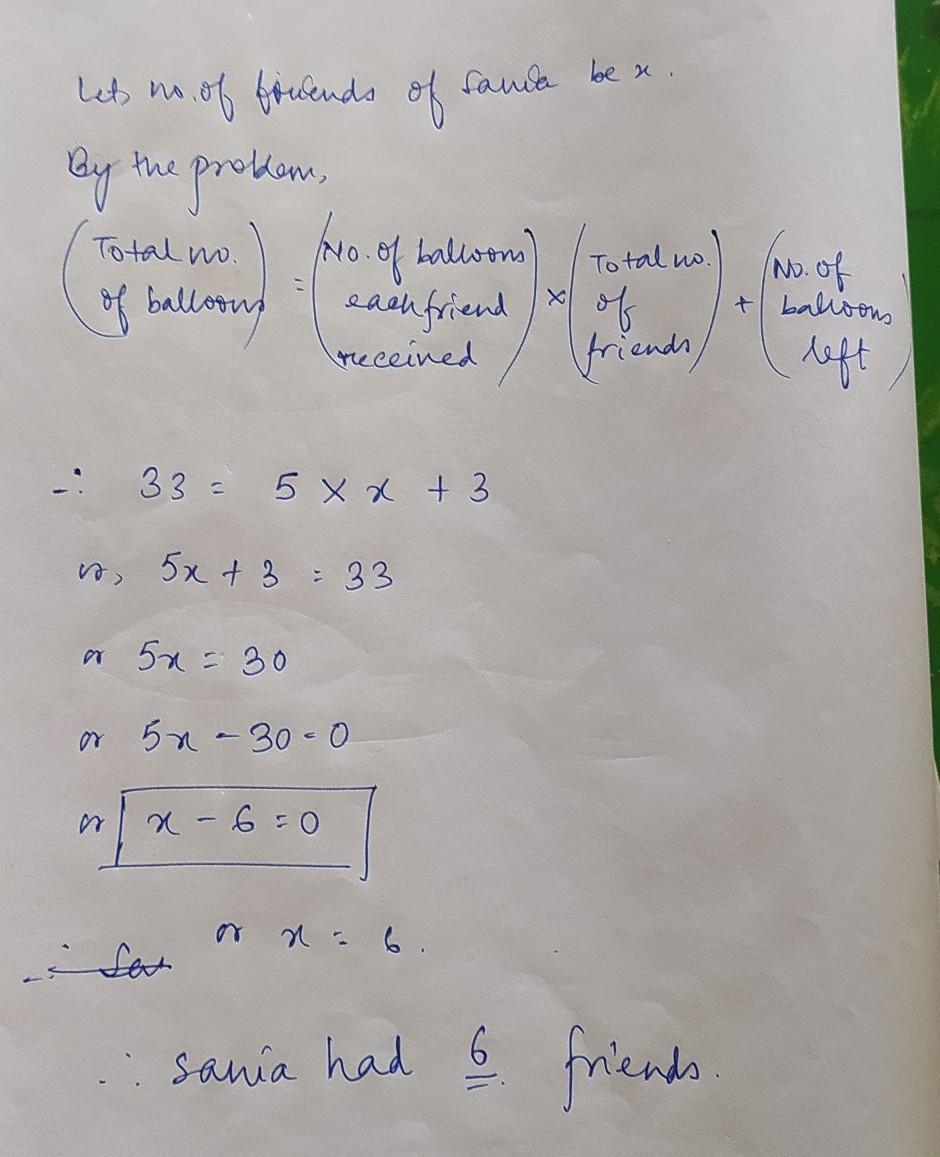 Let no. of friends of Sania be x.
By the problem,
(Total no. of balloons) = (No. of balloons each friend received) × (Total no. of friends) + (No. of balloons left)
∴ 33 = 5 × x + 3
or, 5x + 3 = 33
or 5x = 30
or 5x - 30 = 0
or x - 6 = 0
or x = 6.
∴ Sania had 6 friends.